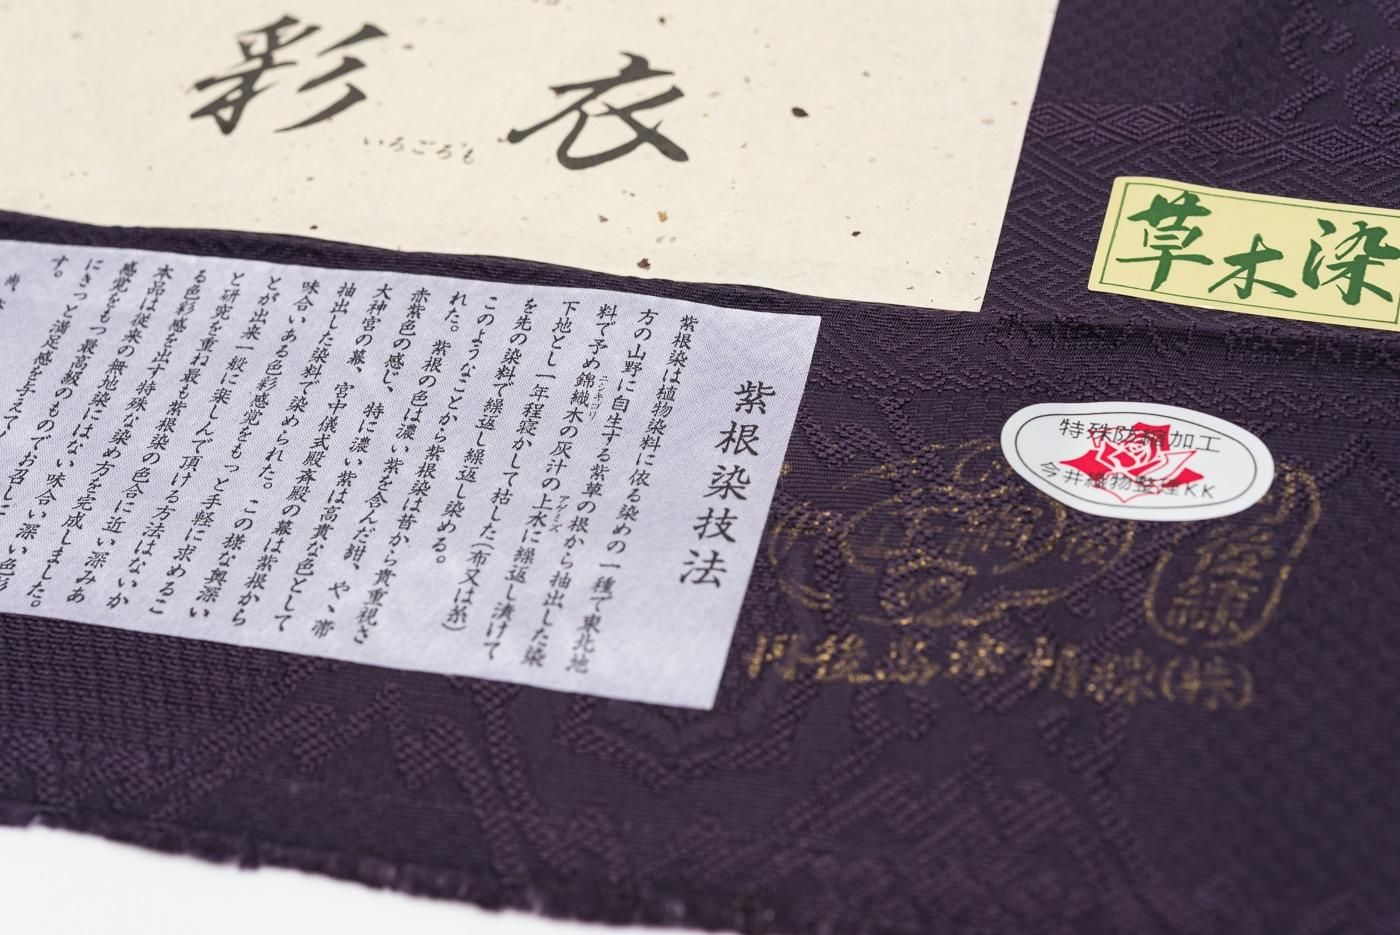 彩衣
いろごろも
草木染
特殊防縮加工
今井織物整理KK
丹後
紫根染技法
紫根染は植物染料に依る染めの一種で東北地
方の山野に自生する紫草の根から抽出した染
料で予め錦織木の灰汁の上水に繰返し漬けて
ニシキゴリ
アゲミズ
下地とし一年程寝かして枯した(布又は糸)
を先の染料で繰返し繰返し染める。
このようなことから紫根染は昔から貴重視さ
れた。紫根の色は濃い紫を含んだ紺、や、帯
赤紫色の感じ、特に濃い紫は高貴な色として
大神宮の幕、宮中儀式殿斉殿の幕は紫根から
抽出した染料で染められた。この様な奥深い
味合いある色彩感覚をもっと手軽に求めるこ
とが出来一般に楽しんで頂ける方法はないか
と研究を重ね最も紫根染の色合に近い深みあ
る色彩感を出す特殊な染め方を完成しました。
本品は従来の無地染にはない味合い深い色彩
感覚をもつ最高級のものでお召しに
にきっと満足感を与えて
す。